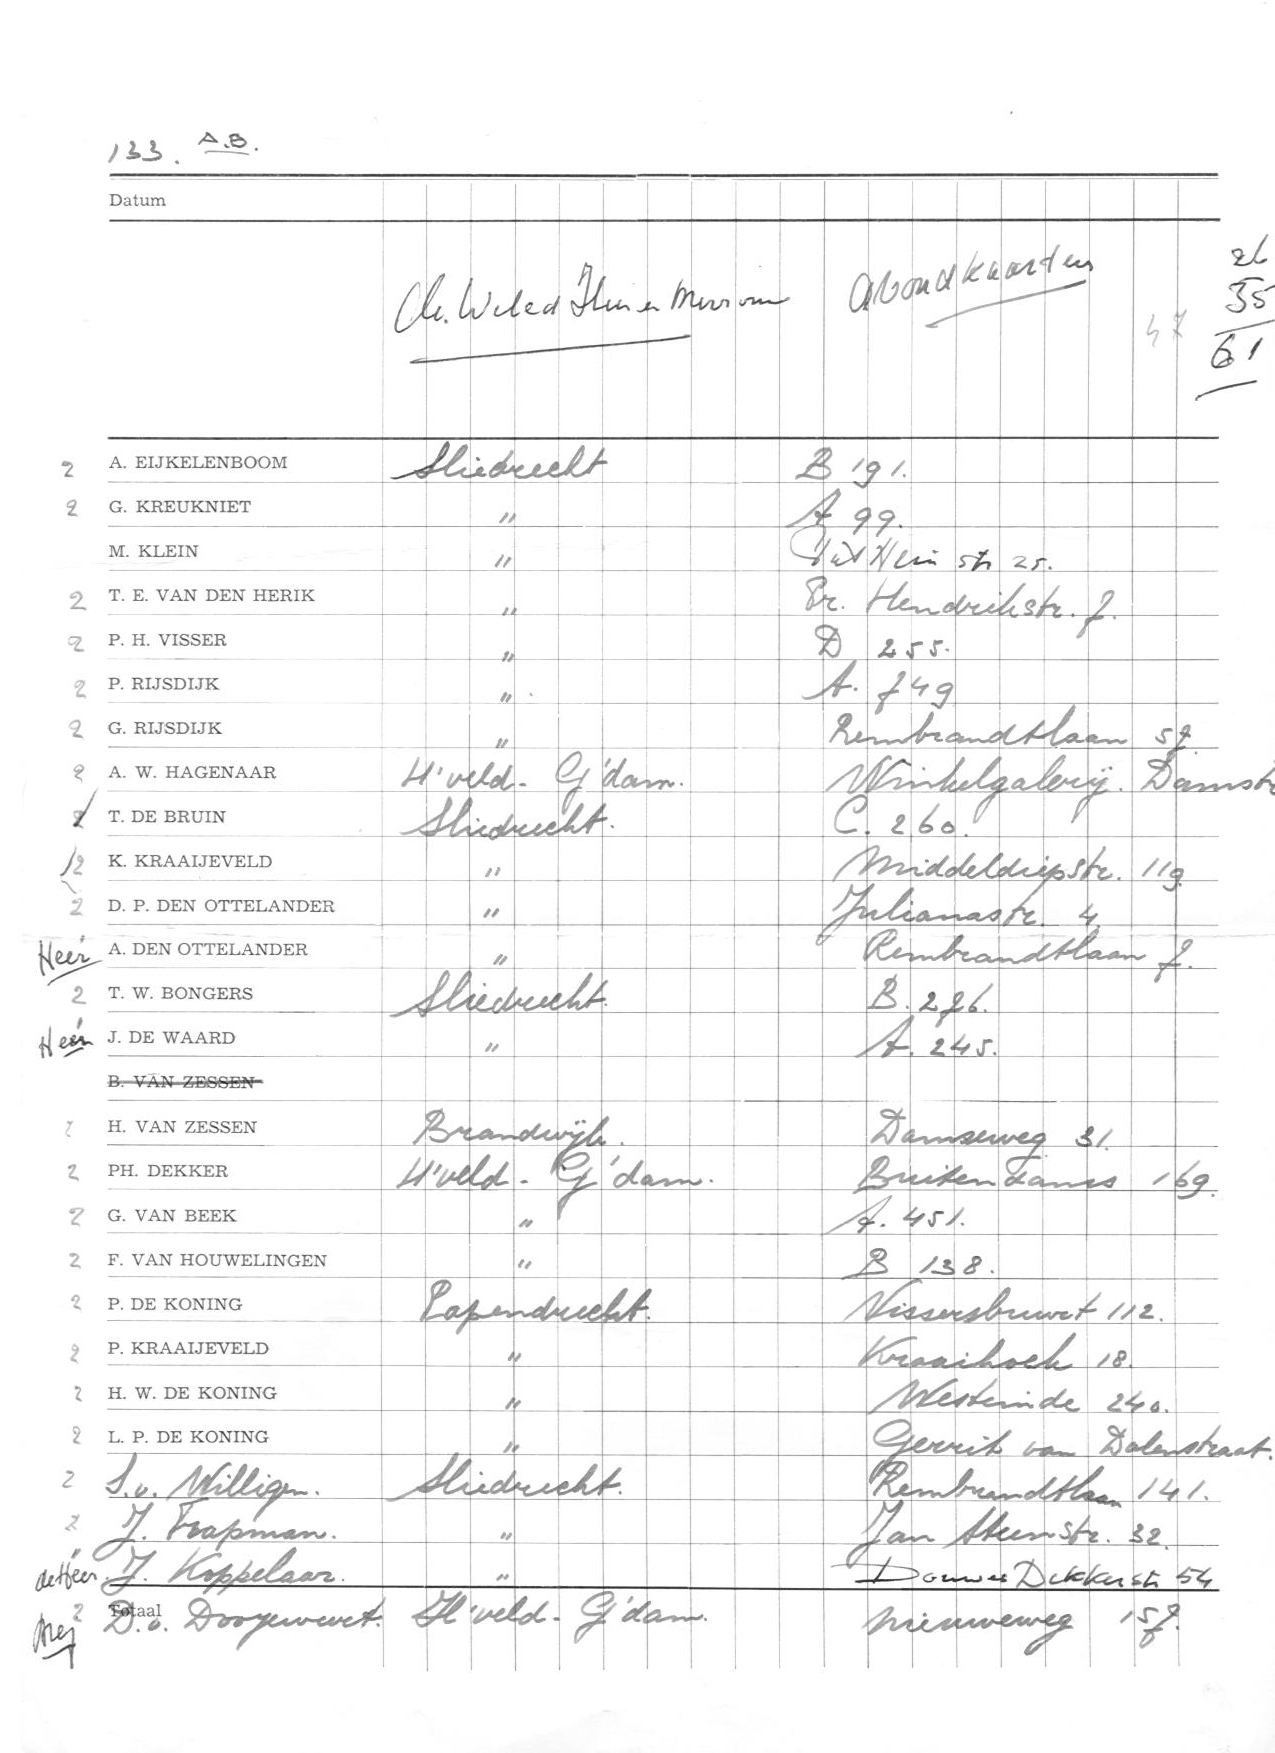 133. A.B.
Datum
De Weled Heer en Mevrouw Avondkaarten
26
35
61
47
2 A. EIJKELENBOOM Sliedrecht B 191.
2 G. KREUKNIET " A 99.
M. KLEIN " Piet Hein str 25.
2 T. E. VAN DEN HERIK " Pr. Hendrikstr. 7.
2 P. H. VISSER " D 255.
2 P. RIJSDIJK " A. 749
2 G. RIJSDIJK " Rembrandtlaan 57
2 A. W. HAGENAAR H'veld - G'dam. Winkelgalerij. Damstr
2 T. DE BRUIN Sliedrecht. C. 260.
2 K. KRAAIJEVELD " Middeldiepstr. 119
2 D. P. DEN OTTELANDER " Julianastr. 4
Heer A. DEN OTTELANDER " Rembrandtlaan 7.
2 T. W. BONGERS Sliedrecht. B. 276.
Heer J. DE WAARD " A. 245.
B. VAN ZESSEN
2 H. VAN ZESSEN Brandwijk. Damseweg 31.
2 PH. DEKKER H'veld - G'dam. Buitendams 169.
2 G. VAN BEEK " A. 451.
2 F. VAN HOUWELINGEN " B 138.
2 P. DE KONING Papendrecht. Vissersbuurt 112.
2 P. KRAAIJEVELD " Kraaihoek 18.
2 H. W. DE KONING " Westeinde 240.
2 L. P. DE KONING " Gerrit van Dalenstraat.
2 S. v. Willigen. Sliedrecht. Rembrandtlaan 141.
2 J. Trapman. " Jan Steenstr. 32.
de Heer J. Koppelaar. " Douwes Dekkerstr 54
Totaal
2 Mej D. v. Dooyeweert. H'veld - G'dam. Nieuweweg 157.